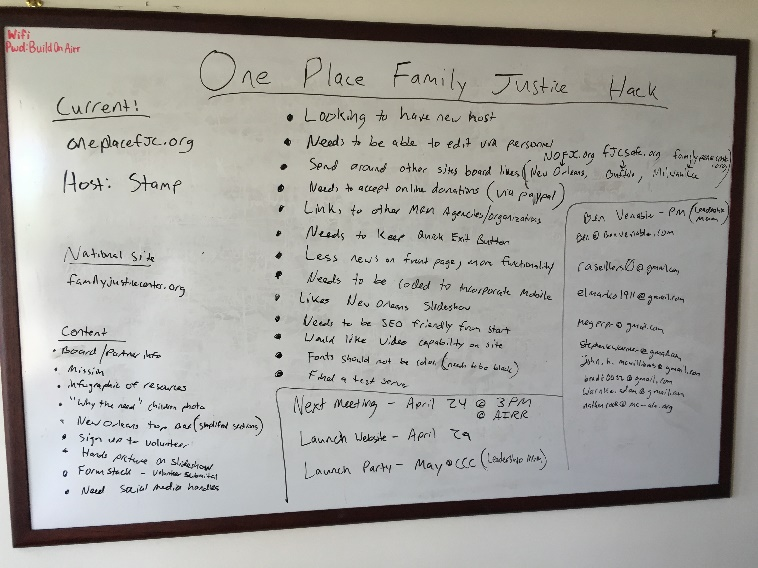 Wifi
Pwd: Build On Airr
One Place Family Justice Hack
Current!
oneplacefjc.org
Host: Stamp
National Site
familyjusticecenter.org
Content
• Board/Partner info
• Mission
• Infographic of resources
• "Why the need" children photo
• New Orleans top Bar (simplified sections)
• Sign up to volunteer
• Hands picture on slideshow
• Formstack - volunteer submittal
• Need social media handles
• Looking to have new host
• Needs to be able to edit via personnel
NOFJC.org fjcsafe.org
• Send around other sites board likes (New Orleans, Buffalo,
• Needs to accept online donations (via paypal)
• Links to other MGM Agencies/organizations
• Needs to Keep Quick Exit Button
• Less news on front page, more functionality
• Needs to be coded to incorporate mobile
• Likes New Orleans Slideshow
• Needs to be SEO friendly from start
• Would like video capability on site
• Fonts should not be color (needs to be black)
• Find a test
Next Meeting - April 24 @ 3PM
@ AIRR
Launch Website - April 29
Launch Party - May @ CCC (Leadership
Ben Venable - PM
Ben@benvenable.com
@gmail.com
elmarko1911@gmail.com
@gmail.com
@gmail.com
john.h.mcwilliams@gmail.com
@gmail.com
@gmail.com